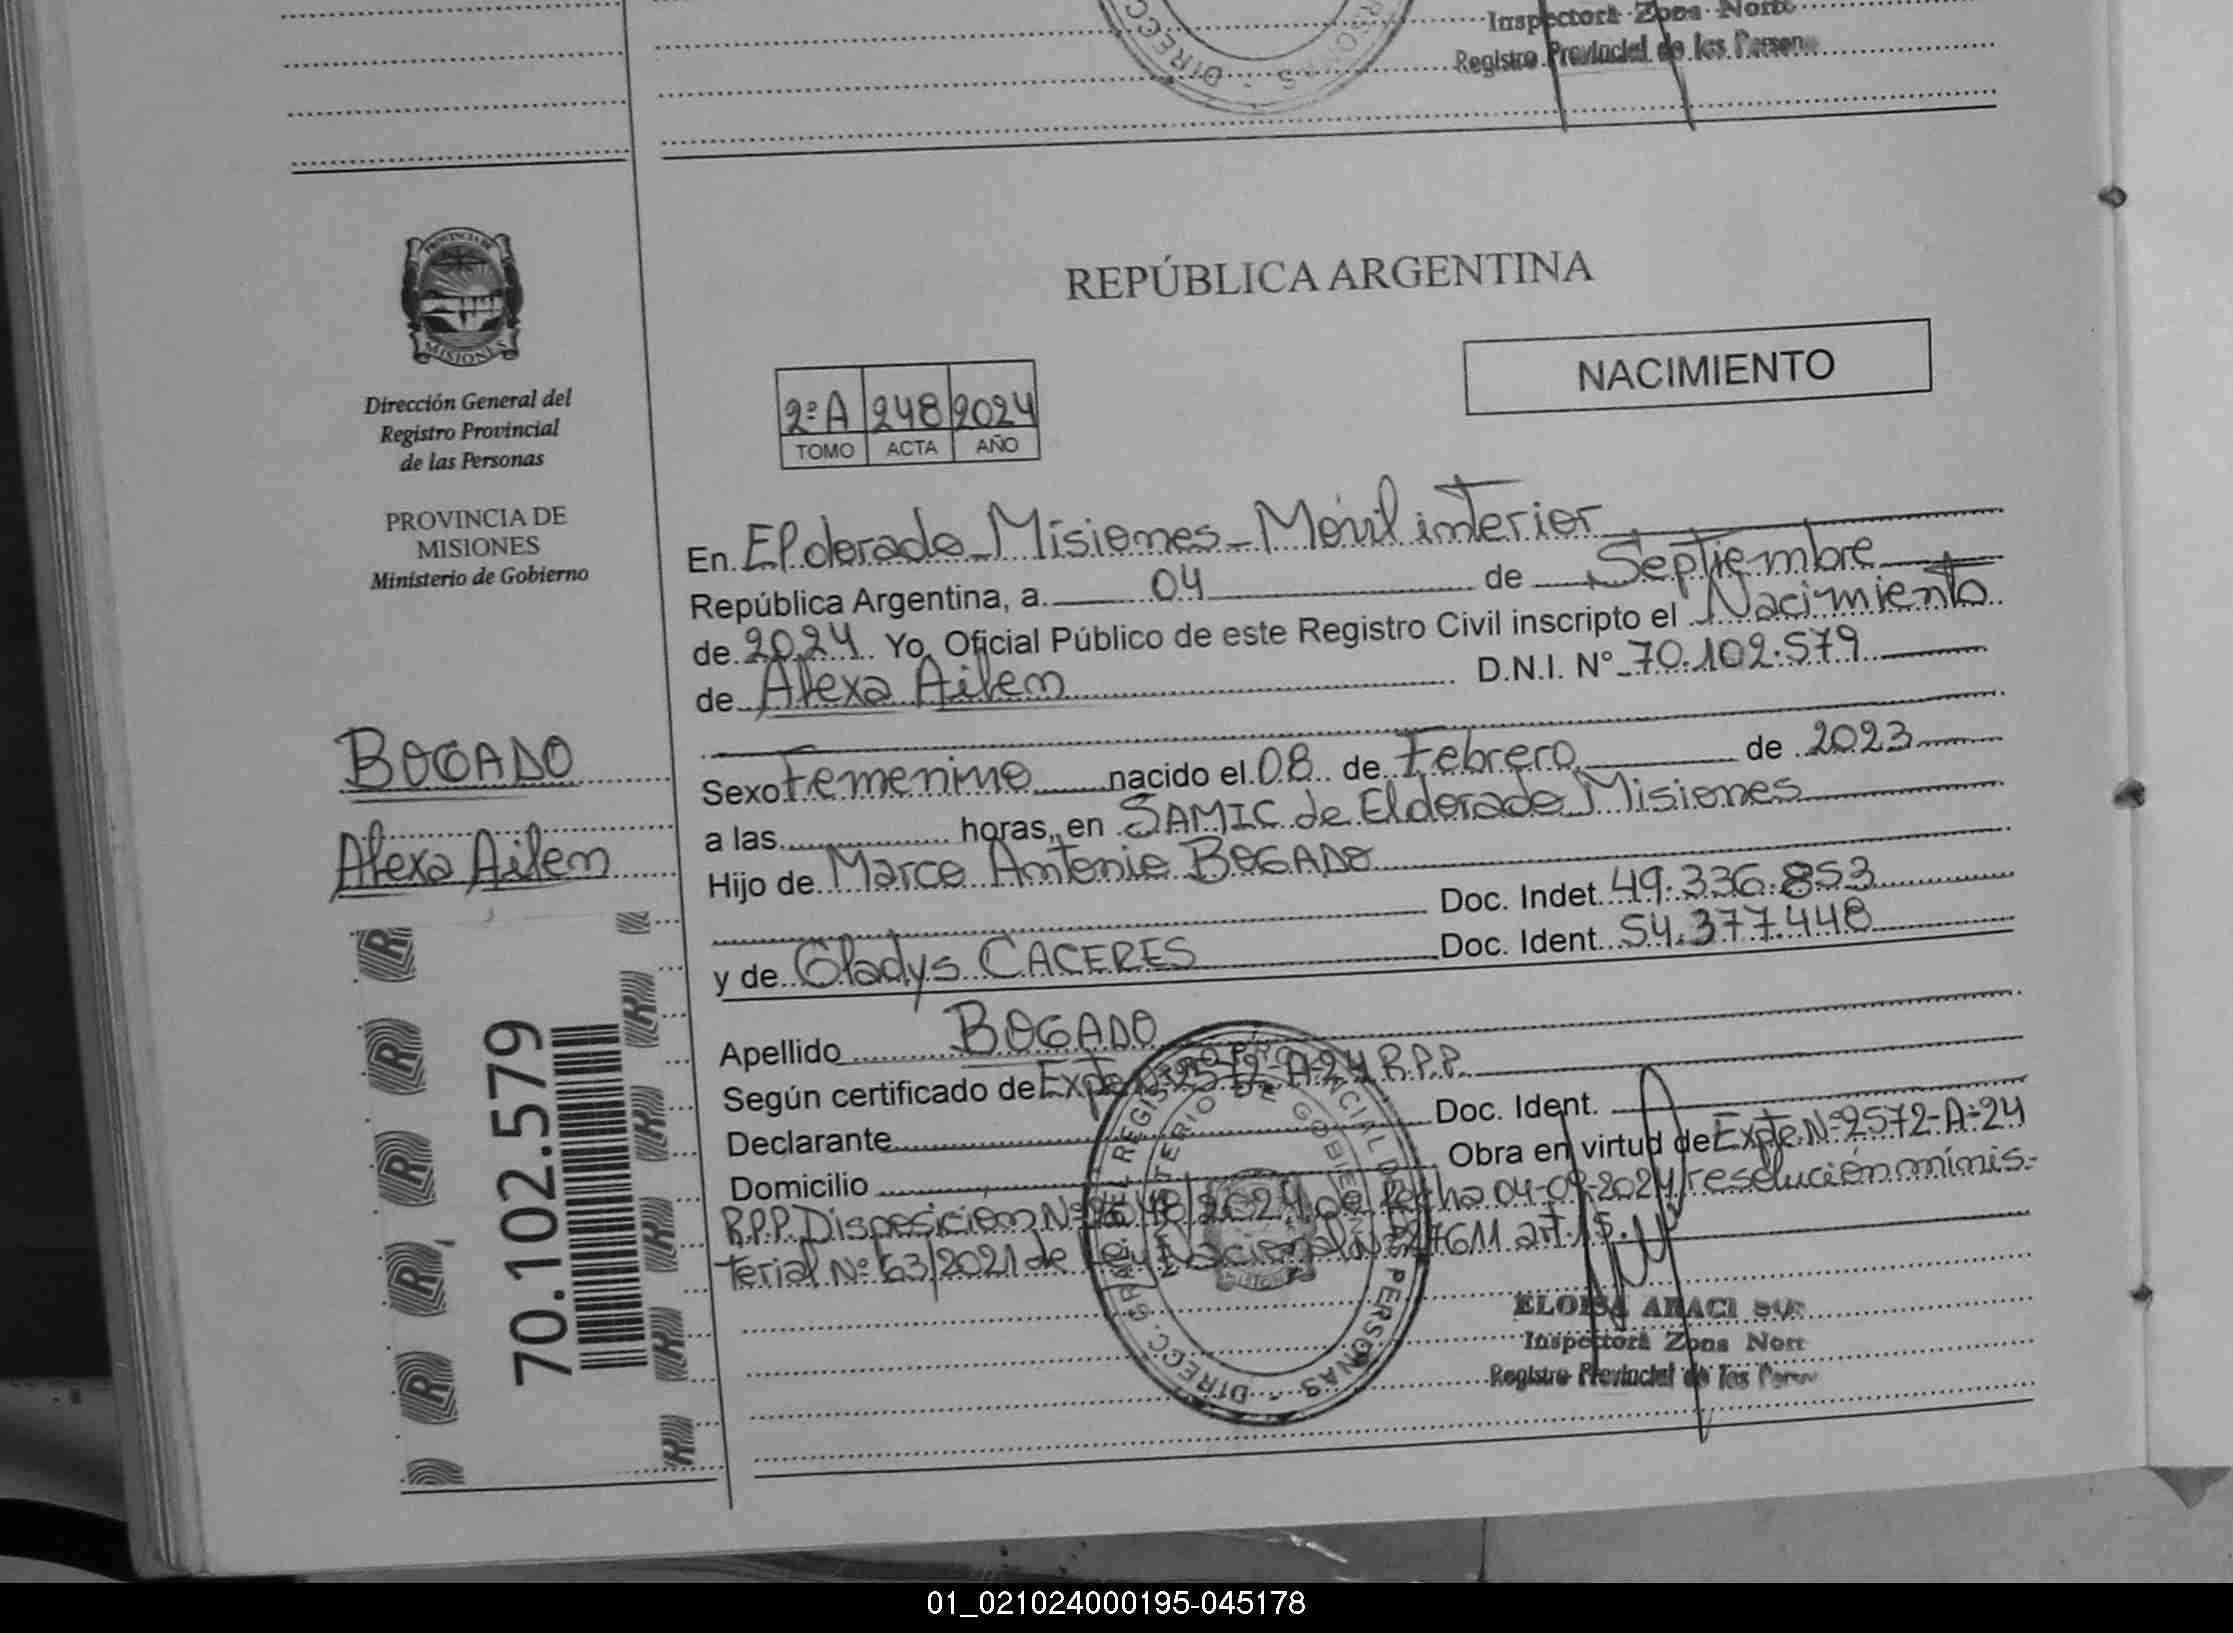 Inspectora Zona Norte
Registro Provincial de las Persona
PROVINCIA DE
MISIONES
REPÚBLICA ARGENTINA
NACIMIENTO
Dirección General del
Registro Provincial
de las Personas
PROVINCIA DE
MISIONES
Ministerio de Gobierno
2ºA 248 2024
TOMO ACTA AÑO
En Eldorado_Misiones_Móvil interior
República Argentina, a 04 de Septiembre
de 2024 Yo, Oficial Público de este Registro Civil inscripto el Nacimiento
de Alexa Ailem D.N.I. N° 70.102.579
BOGADO
Alexa Ailem
Sexo Femenino nacido el 08 de Febrero de 2023
a las horas, en SAMIC de Eldorado Misiones
Hijo de Marco Antonio BOGADO
Doc. Indet 49.336.853
y de Gladys CACERES Doc. Ident 54.377.448
Apellido BOGADO
Según certificado de Expte 2572-A-24 R.P.P.
Declarante Doc. Ident.
Domicilio Obra en virtud de Expte Nº2572-A-24
R.P.P. Disposicion Nº /2024 de fecha 04-09-2024, resolución minis-
terial Nº 63/2021 de Ley Nacional Nº 27611 art. 15.
70.102.579
DIRECC. GRAL. DEL REGISTRO PROVINCIAL DE LAS PERSONAS
MINISTERIO DE GOBIERNO
ELOISA ARACI
Inspectora Zona Nort
Registro Provincial de las Person
01_021024000195-045178